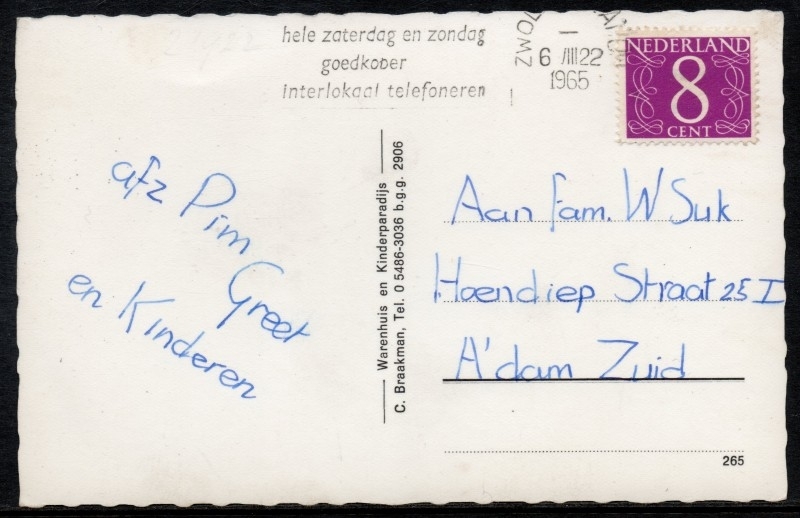 hele zaterdag en zondag
goedkoper
interlokaal telefoneren
6 22
1965
NEDERLAND
8
CENT
afz Pim
Greet
en Kinderen
Warenhuis en Kinderparadijs
C. Braakman, Tel. 0 5486-3036 b.g.g. 2906
Aan Fam. W Suk
Hoendiep Straat 25 I
A'dam Zuid
265